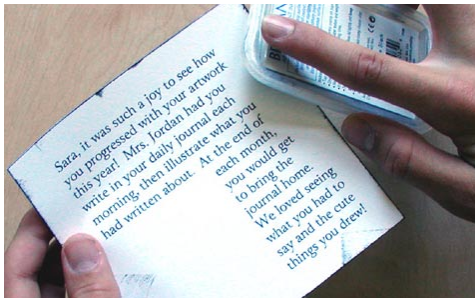 Sara, it was such a joy to see how
you progressed with your artwork
this year! Mrs. Jordan had you
write in your daily journal each
morning, then illustrate what you
had written about. At the end of
each month,
you would get
to bring the
journal home.
We loved seeing
what you had to
say and the cute
things you drew!